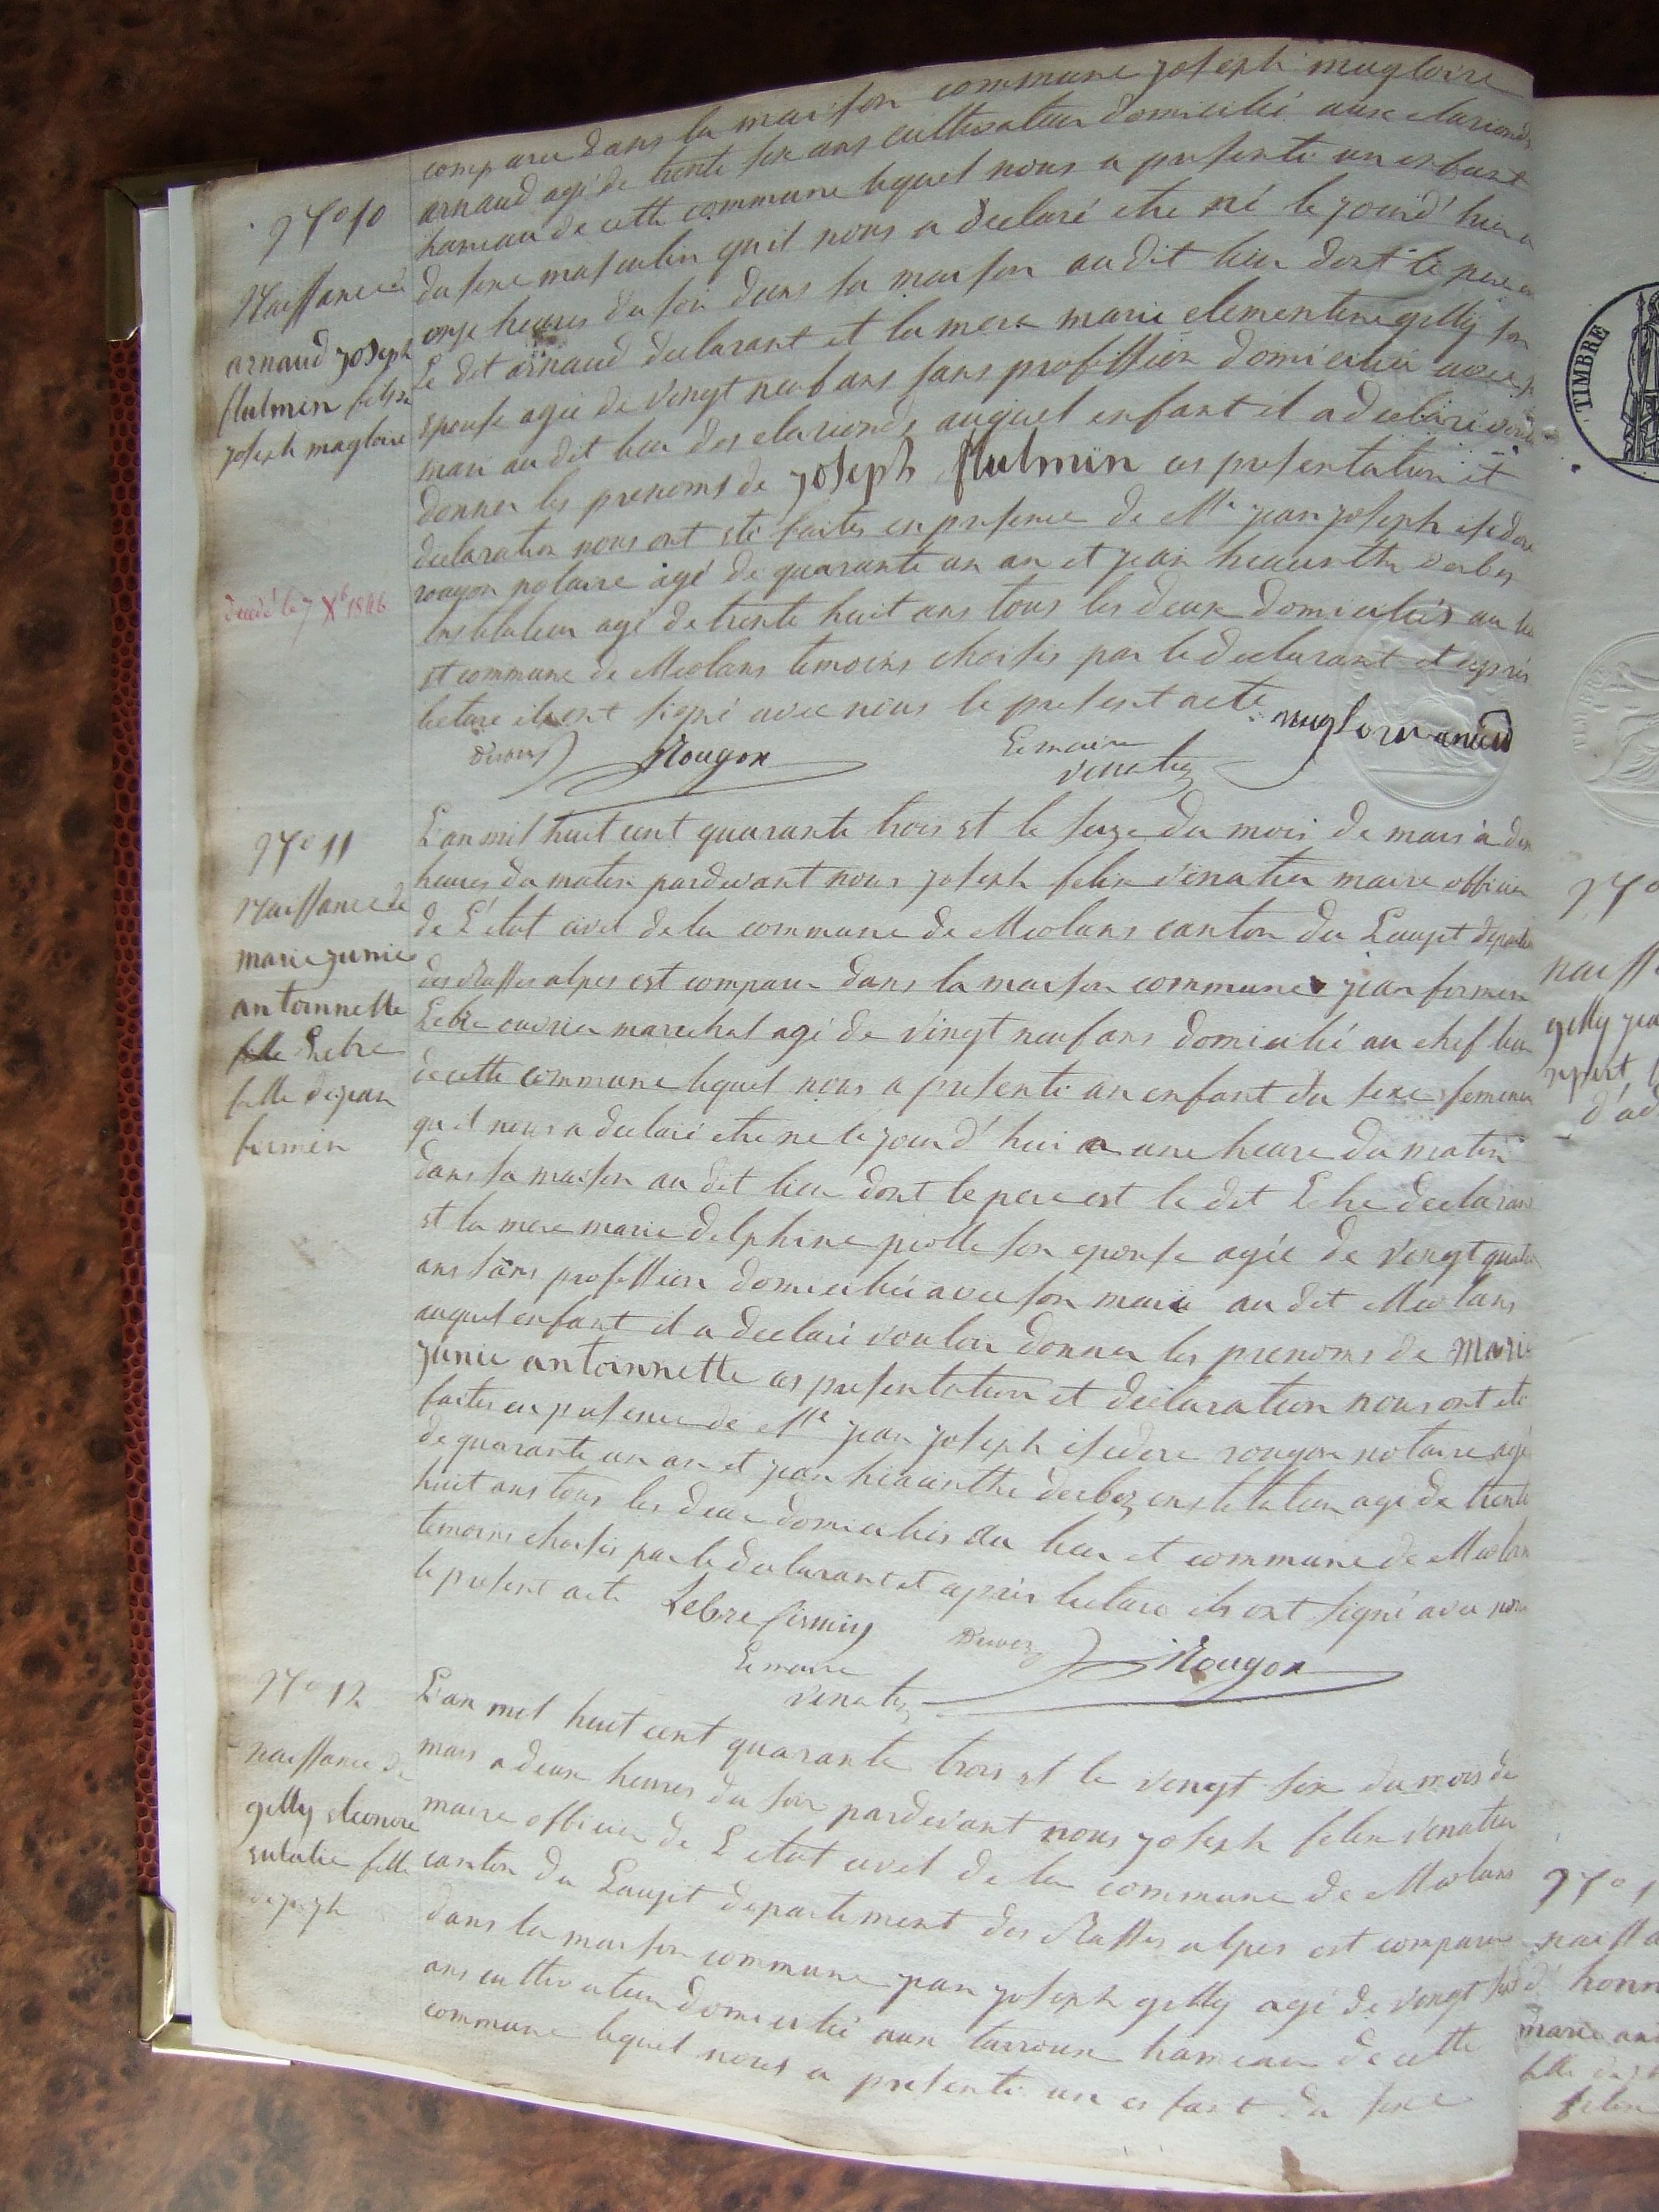 comparu dans la maison commune joseph magloire
arnaud agé de trente six ans cultivateur domicilié aux clarionds
hameau de cette commune lequel nous a presenté un enfant
du sexe masculin qu'il nous a declaré etre né le jourd'hui a
onze heures du soir dans sa maison au dit lieu dont le pere est
Le dit arnaud declarant et la mere marie clementine gilly son
epouse agée de vingt neuf ans sans profession domiciliée avec son
mari au dit lieu des clarionds auquel enfant il a declaré vouloir
donner les prenoms de joseph flulmin ces presentation et
declaration nous ont eté faites en presence de Me jean joseph isidore
rougon notaire agé de quarante un an et jean hiacinthe derbez
instituteur agé de trente huit ans tous les deux domiciliés au lieu
et commune de Meolans temoins choisis par le declarant et après
lecture ils ont signé avec nous le present acte
Rougon Le maire
N° 10
Naissance de
arnaud joseph
flulmin fils de
joseph magloire
decedé le 7 Xbre 1846
N° 11
Naissance de
marie junie
antoinnette
fille Lebre
fille de jean
firmin
L'an mil huit cent quarante trois et le seize du mois de mars à dix
heures du matin pardevant nous joseph felix vinatier maire officier
de L'état civil de la commune de Meolans canton du Lauzet departement
des Basses alpes est comparu dans la maison commune jean firmin
Lebre ouvrier marechal agé de vingt neuf ans domicilié au chef lieu
de cette commune lequel nous a presenté un enfant du sexe feminin
qu'il nous a declaré etre né le jourd'hui a une heure du matin
dans sa maison au dit lieu dont le pere est le dit Lebre declarant
et la mere marie delphine piolle son epouse agée de vingt quatre
ans sans profession domiciliée avec son marie au dit Meolans
auquel enfant il a declaré vouloir donner les prenoms de Marie
junie antoinnette ces presentation et declaration nous ont eté
faites en presence de Me jean joseph isidore rougon notaire agé
de quarante un an et jean hiacinthe derbez instituteur agé de trente
huit ans tous les deux domiciliés au lieu et commune de Meolans
temoins choisis par le declarant et après lecture ils ont signé avec nous
le present acte Lebre firmin Rougon
Le maire
vinatier
N° 12
naissance de
gilly eleonore
eulalie fille
de joseph
L'an mil huit cent quarante trois et le vingt six du mois de
mars a deux heures du soir pardevant nous joseph felix vinatier
maire officier de L'etat civil de la commune de Meolans
canton du Lauzet departement des Basses alpes est comparu
dans la maison commune jean joseph gilly agé de vingt six
ans cultivateur domicilié aux tarroux hameau de cette
commune lequel nous a presenté un enfant du sexe
TIMBRE